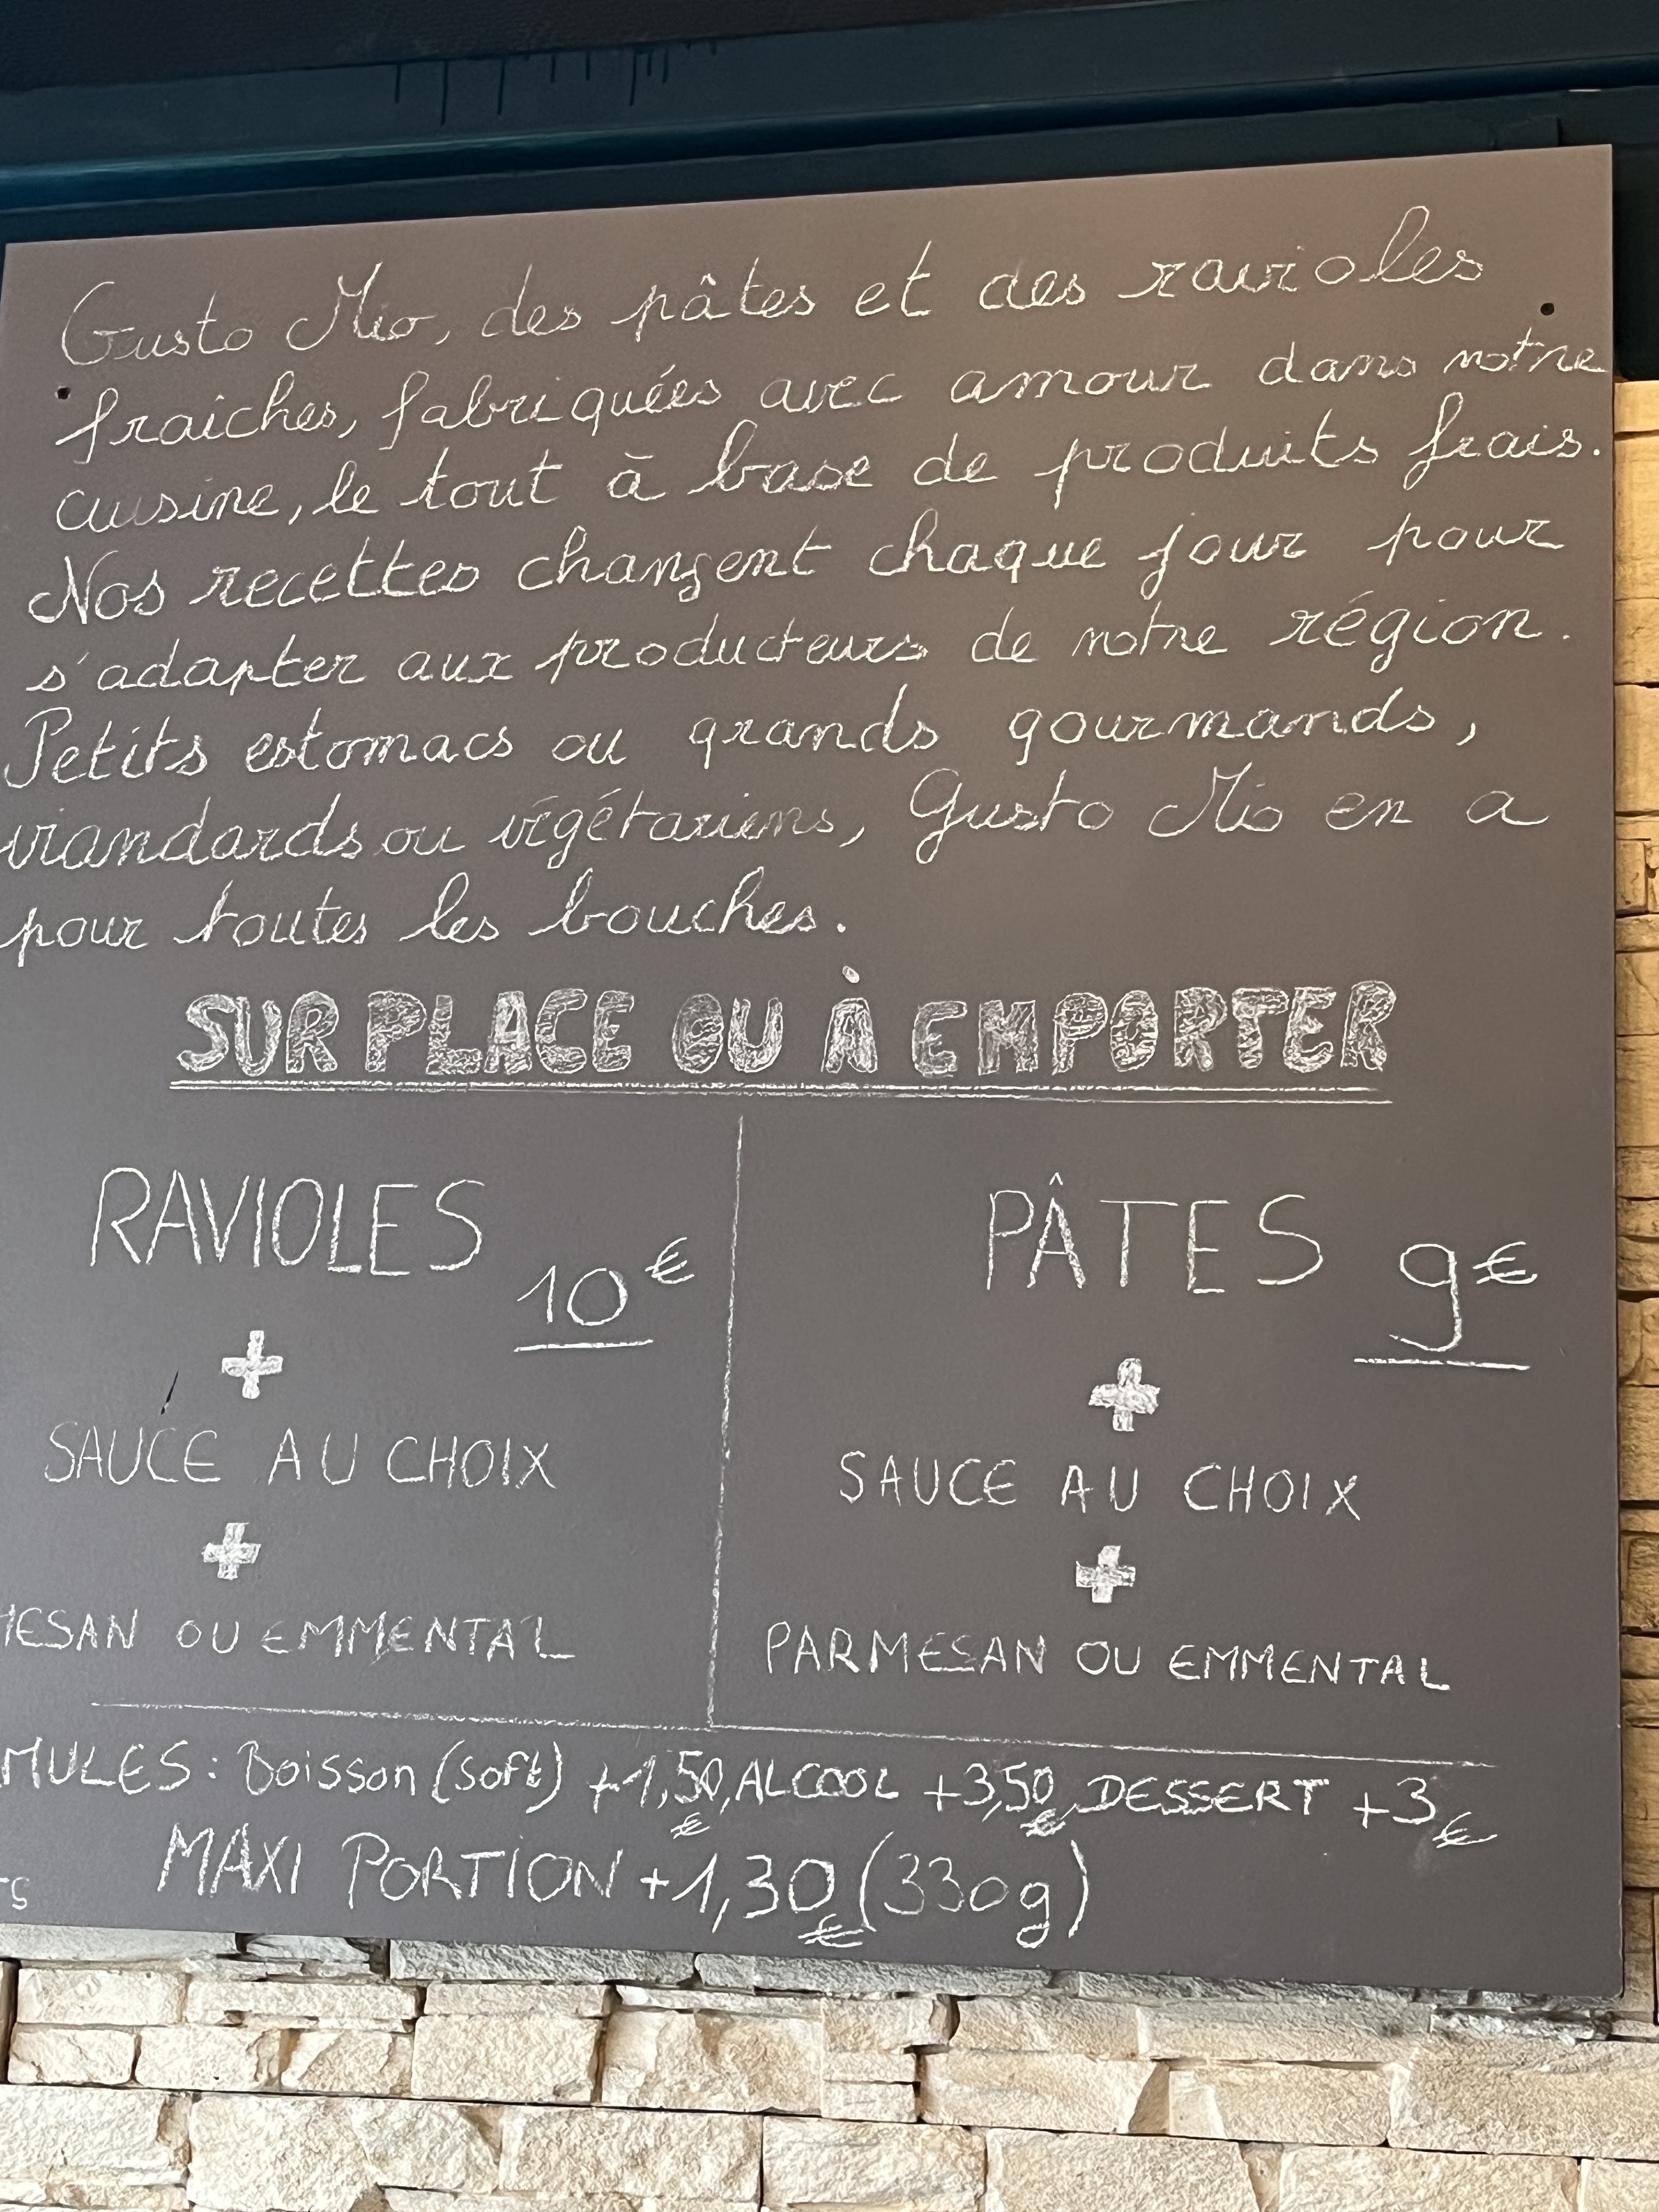 Gusto Mio, des pâtes et des ravioles
fraiches, fabriquées avec amour dans notre
cuisine, le tout à base de produits frais.
Nos recettes changent chaque jour pour
s'adapter aux producteurs de notre région.
Petits estomacs ou grands gourmands,
viandards ou végétariens, Gusto Mio en a
pour toutes les bouches.
SUR PLACE OU À EMPORTER
RAVIOLES 10€
+
SAUCE AU CHOIX
+
MESAN OU EMMENTAL
PÂTES 9€
+
SAUCE AU CHOIX
+
PARMESAN OU EMMENTAL
MULES : Boisson (soft) +1,50€, ALCOOL +3,50€, DESSERT +3€
MAXI PORTION +1,30€ (330g)